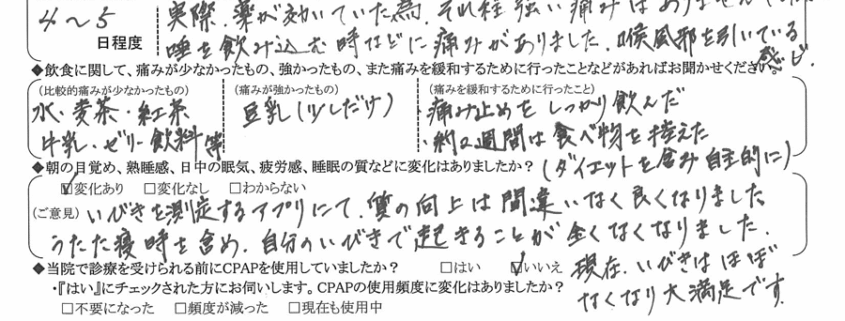 4～5
日程度
実際、薬が効いていた為、それ程強い痛みはありませんでしたが、
唾を飲み込む時などに痛みがありました。喉風邪を引いている感じ。
◆飲食に関して、痛みが少なかったもの、強かったもの、また痛みを緩和するために行ったことなどがあればお聞かせください
(比較的痛みが少なかったもの)
水・麦茶・紅茶
牛乳・ゼリー飲料等
(痛みが強かったもの)
豆乳(少しだけ)
(痛みを緩和するために行ったこと)
・痛み止めをしっかり飲んだ
・約2週間は食べ物を控えた
(ダイエットを含み自主的に)
◆朝の目覚め、熟睡感、日中の眠気、疲労感、睡眠の質などに変化はありましたか？
☑変化あり □変化なし □わからない
(ご意見)いびきを測定するアプリにて、質の向上は間違いなく良くなりました
うたた寝時も含め、自分のいびきで起きることが全くなくなりました。
現在、いびきはほぼ
なくなり大満足です。
◆当院で診療を受けられる前にCPAPを使用していましたか？ □はい ☑いいえ
・『はい』にチェックされた方にお伺いします。CPAPの使用頻度に変化はありましたか？
□不要になった □頻度が減った □現在も使用中